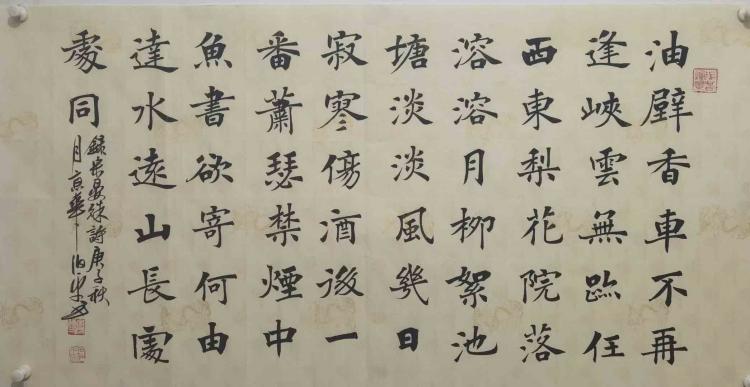 油壁香車不再
逢峽雲無跡任
西東梨花院落
溶溶月柳絮池
塘淡淡風幾日
寂寒傷酒後一
番蕭瑟禁煙中
魚書欲寄何由
達水遠山長處
處同
錄宋晏殊詩庚子秋
月京華